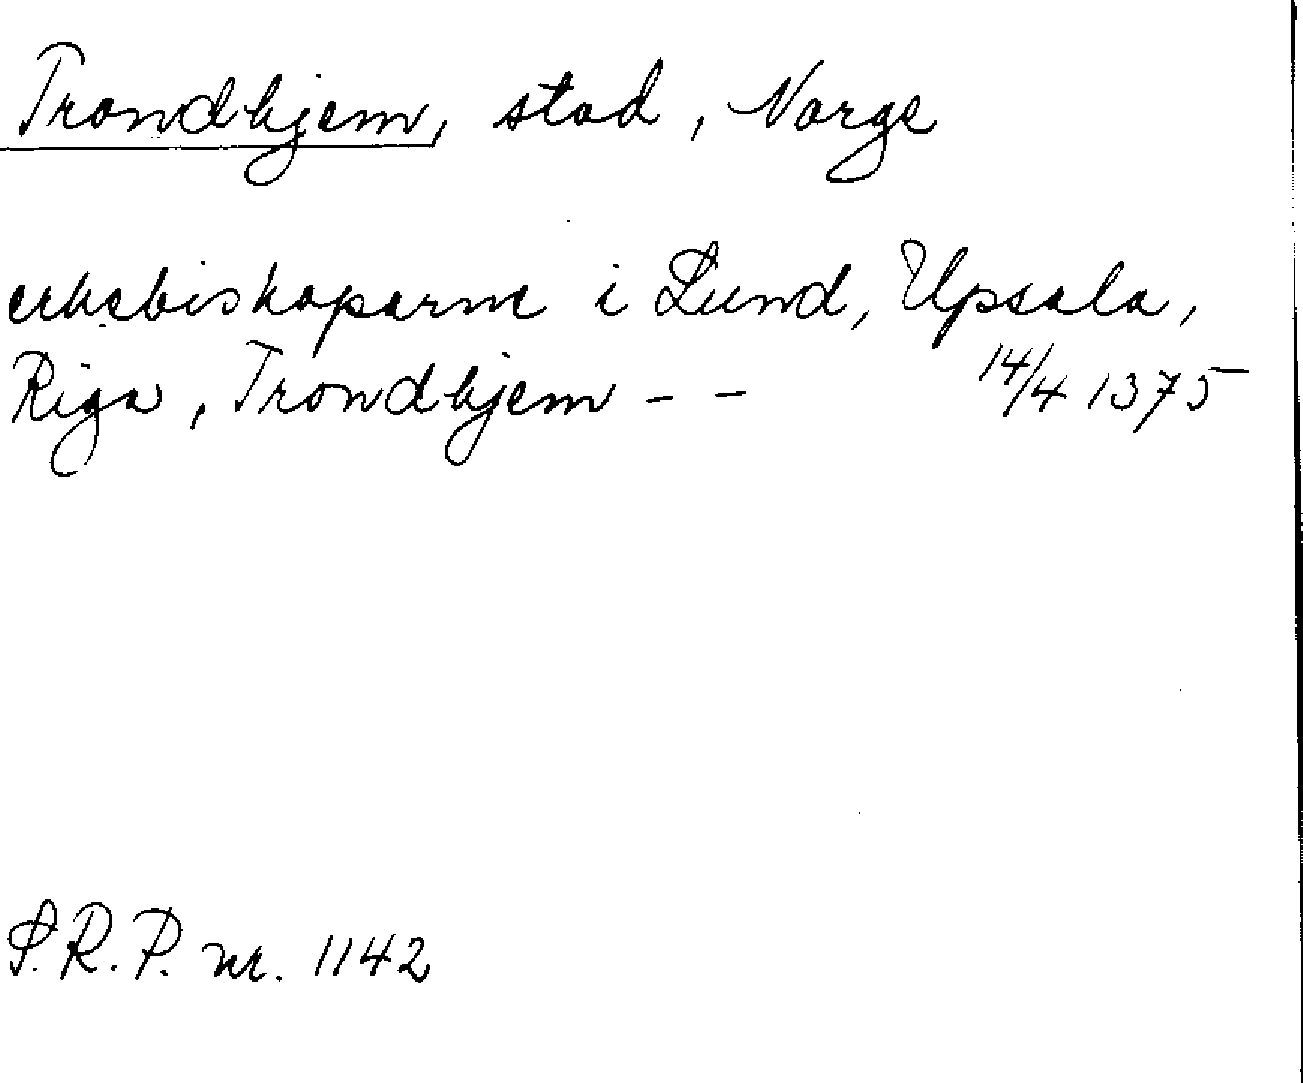 Trondhjem, stad, Norge
erkebiskoparne i Lund, Upsala,
Riga, Trondhjem - - 14/4 1375
S.R.P. nr. 1142